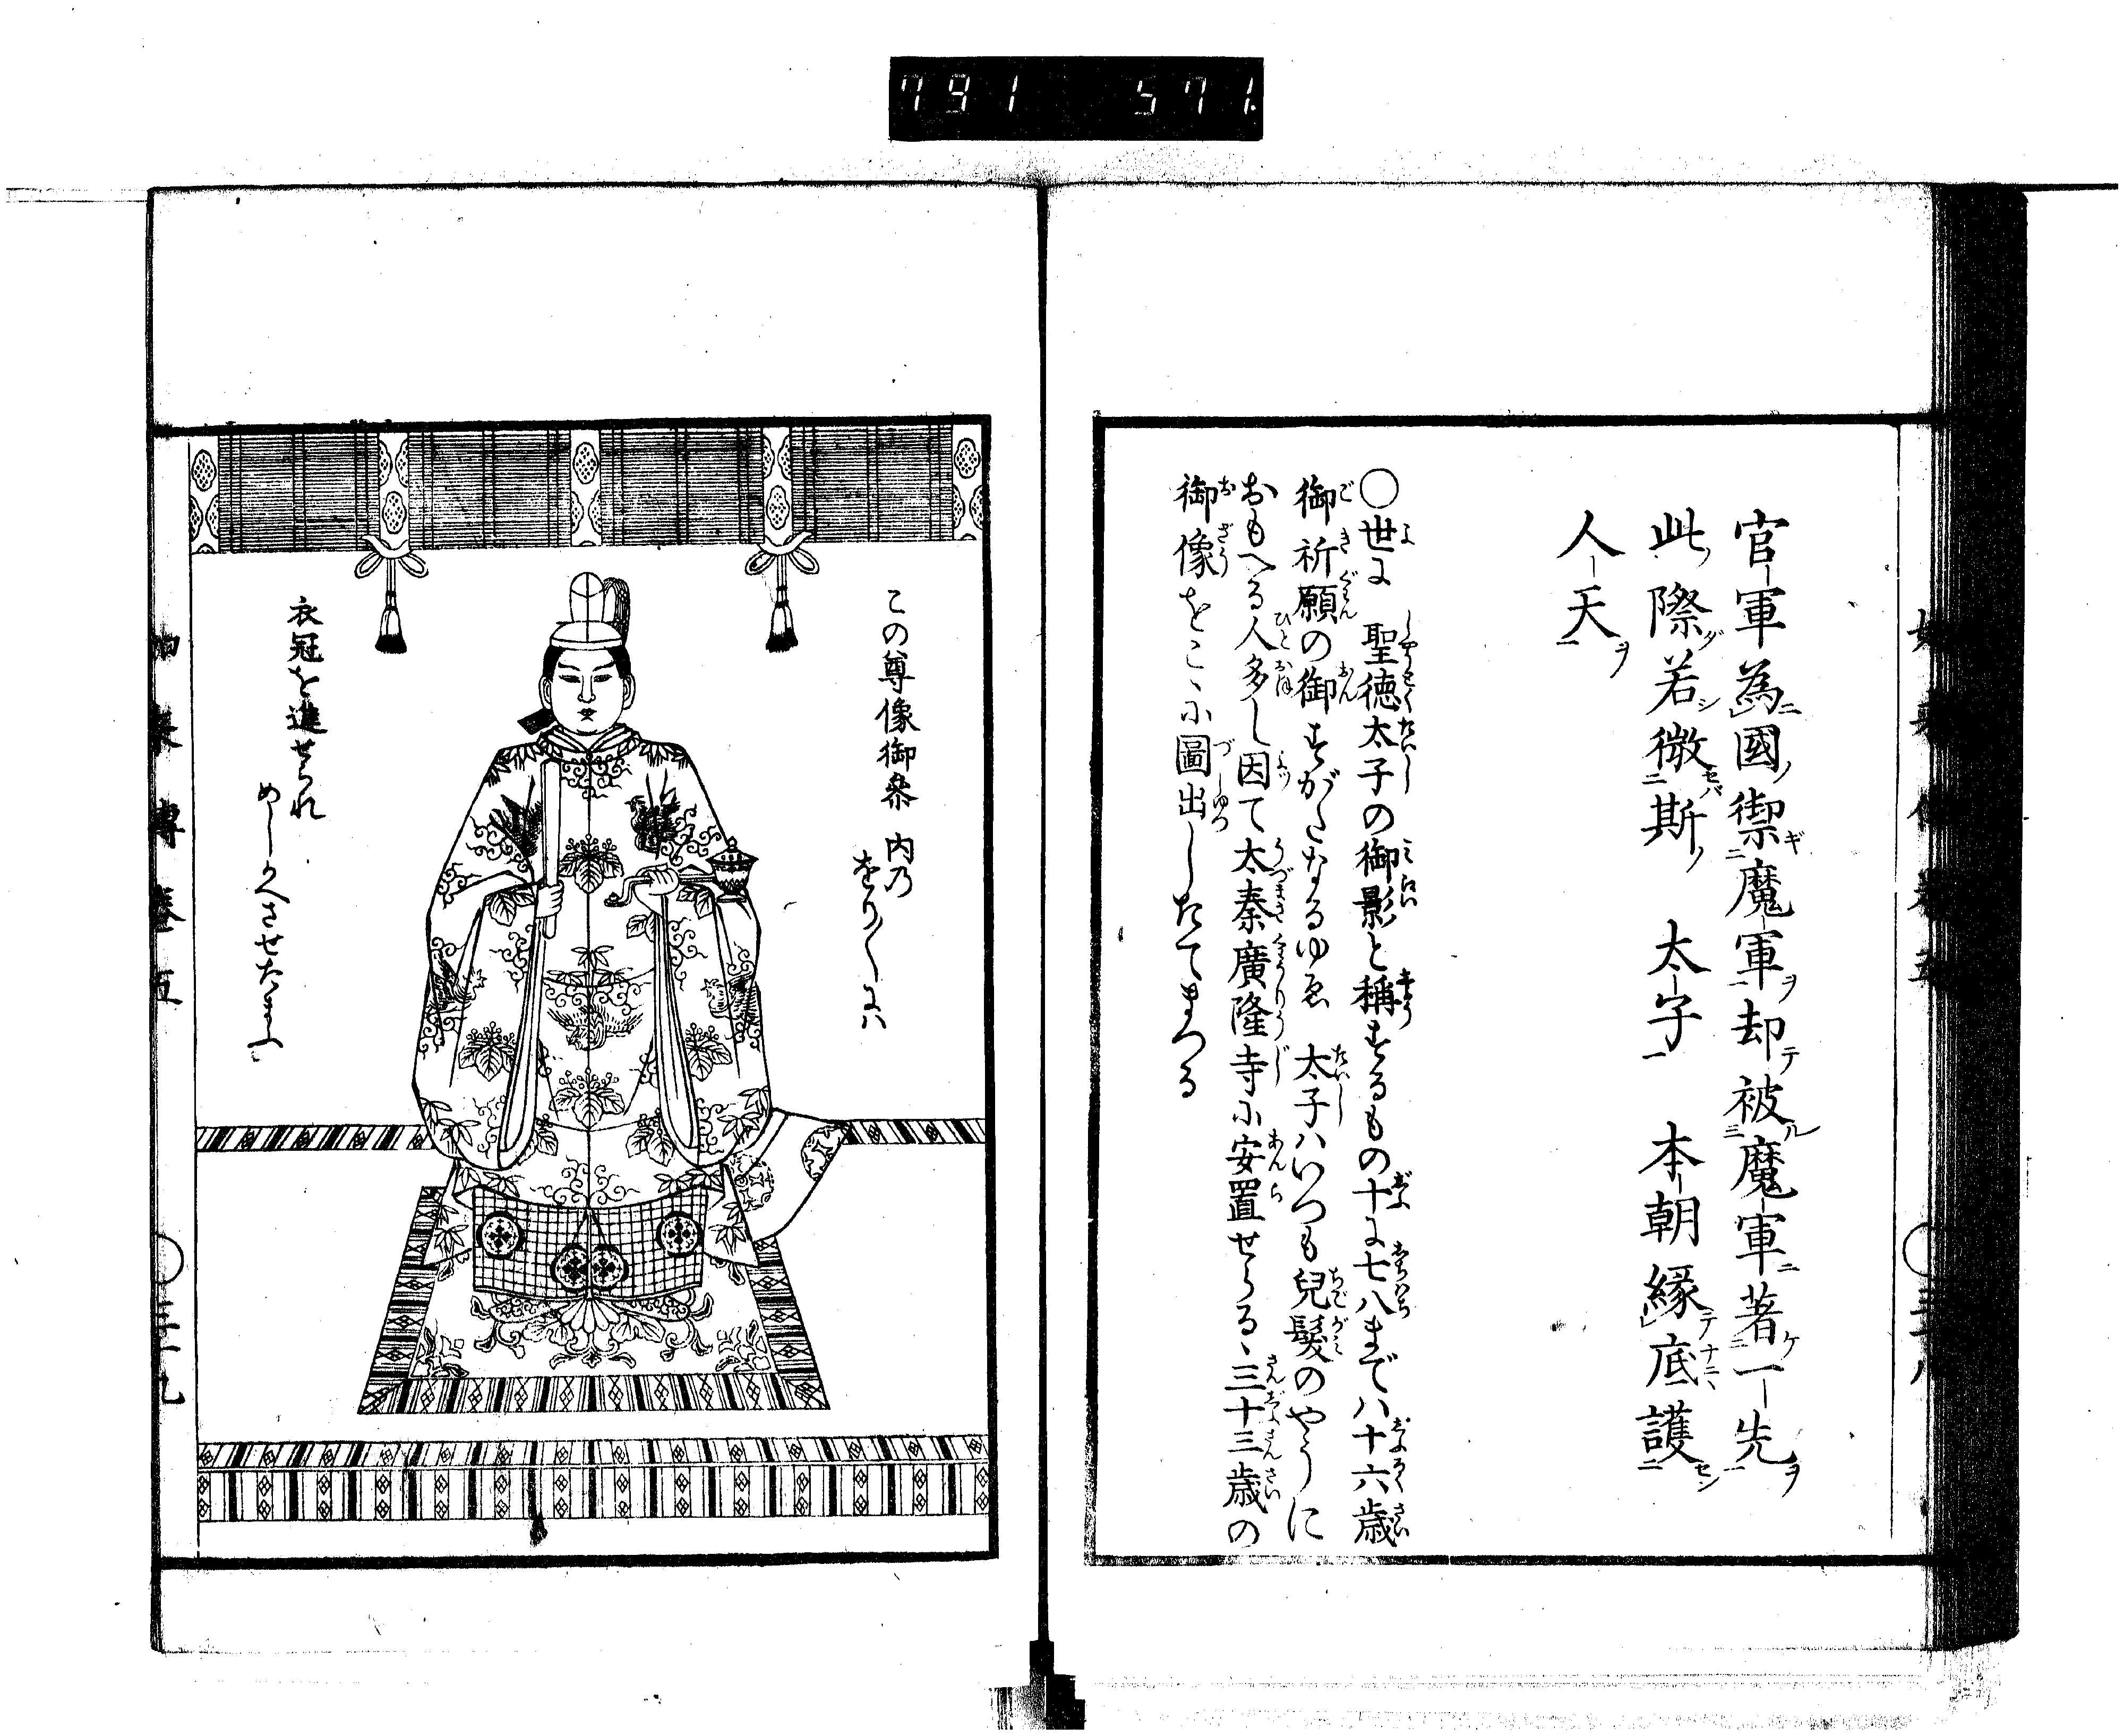 791 571
官軍為國禦魔軍却被魔軍著一先
此際若微斯太子本朝縁底護
人天
○世に聖徳太子の御影と称するもの十に七八まで八十六歳
御祈願の御すがたなるゆゑ太子ハいつも兒髪のやうに
おもへる人多し因て太秦廣隆寺に安置せらるゝ三十三歳の
御像をこゝに圖出したてまつる
この尊像御參内乃
をり〳〵にハ
衣冠を進せられ
めしかへさせたまふ